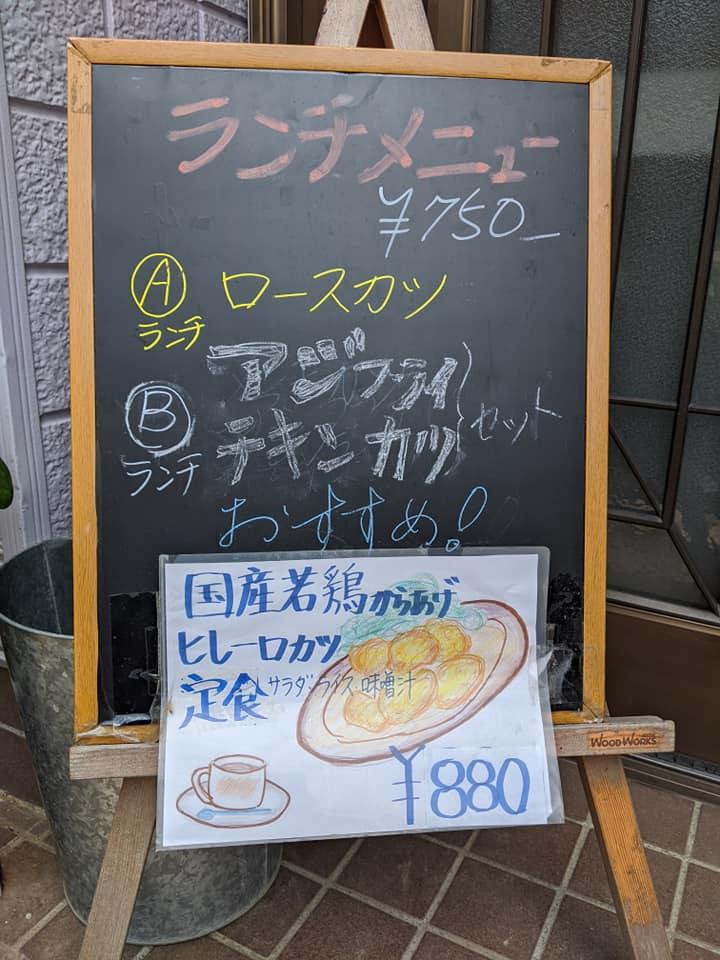 ランチメニュー
¥750
Ⓐ ロースカツ
ランチ
Ⓑ アジフライ
チキンカツ セット
ランチ
おすすめ!
国産若鶏からあげ
ヒレー口カツ
定食 サラダ・ライス、味噌汁
¥880
WOODWORKS